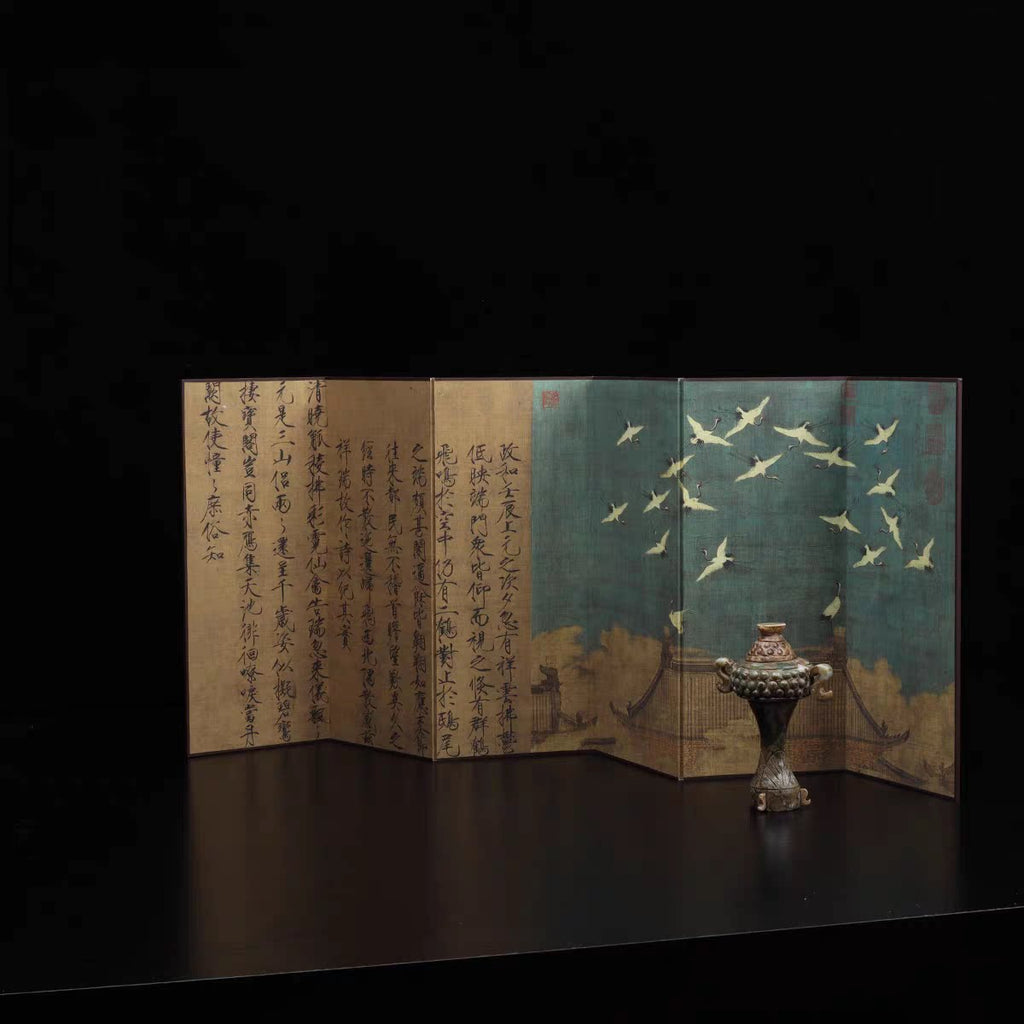 政和壬辰上元之次夕忽有祥雲拂鬱
低映端門衆皆仰而視之倏有群鶴
飛鳴於空中仍有二鶴對止於鴟尾
之端頗甚閑適餘皆翱翔如應奏節
往來都民無不稽首瞻望歎異久之
經時不散迤邐歸飛西北隅散感茲
祥瑞故作詩以紀其實
清曉觚稜拂彩霓仙禽告瑞忽來儀飄〻
元是三山侶兩〻還呈千歲姿似擬碧鸞
棲寶閣豈同赤鴈集天池徘徊嘹唳當丹
闕故使憧〻庶俗知